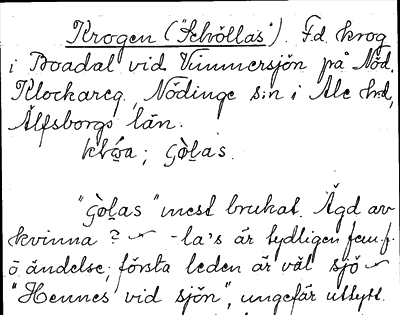 Krogen ("Schöllas"). Fd. krog
i Boadal vid Vimmersjön på Nöd.
Klockareg., Nödinge s:n i Ale hd,
Älfsborgs län.
; Gòlas.
"Gòlas" mest brukat. Ägd av
kvinna? - -la's är tydligen fem.f.
ö. ändelse; första leden är väl sjö -
"Hennes vid sjön", ungefär uttytt.